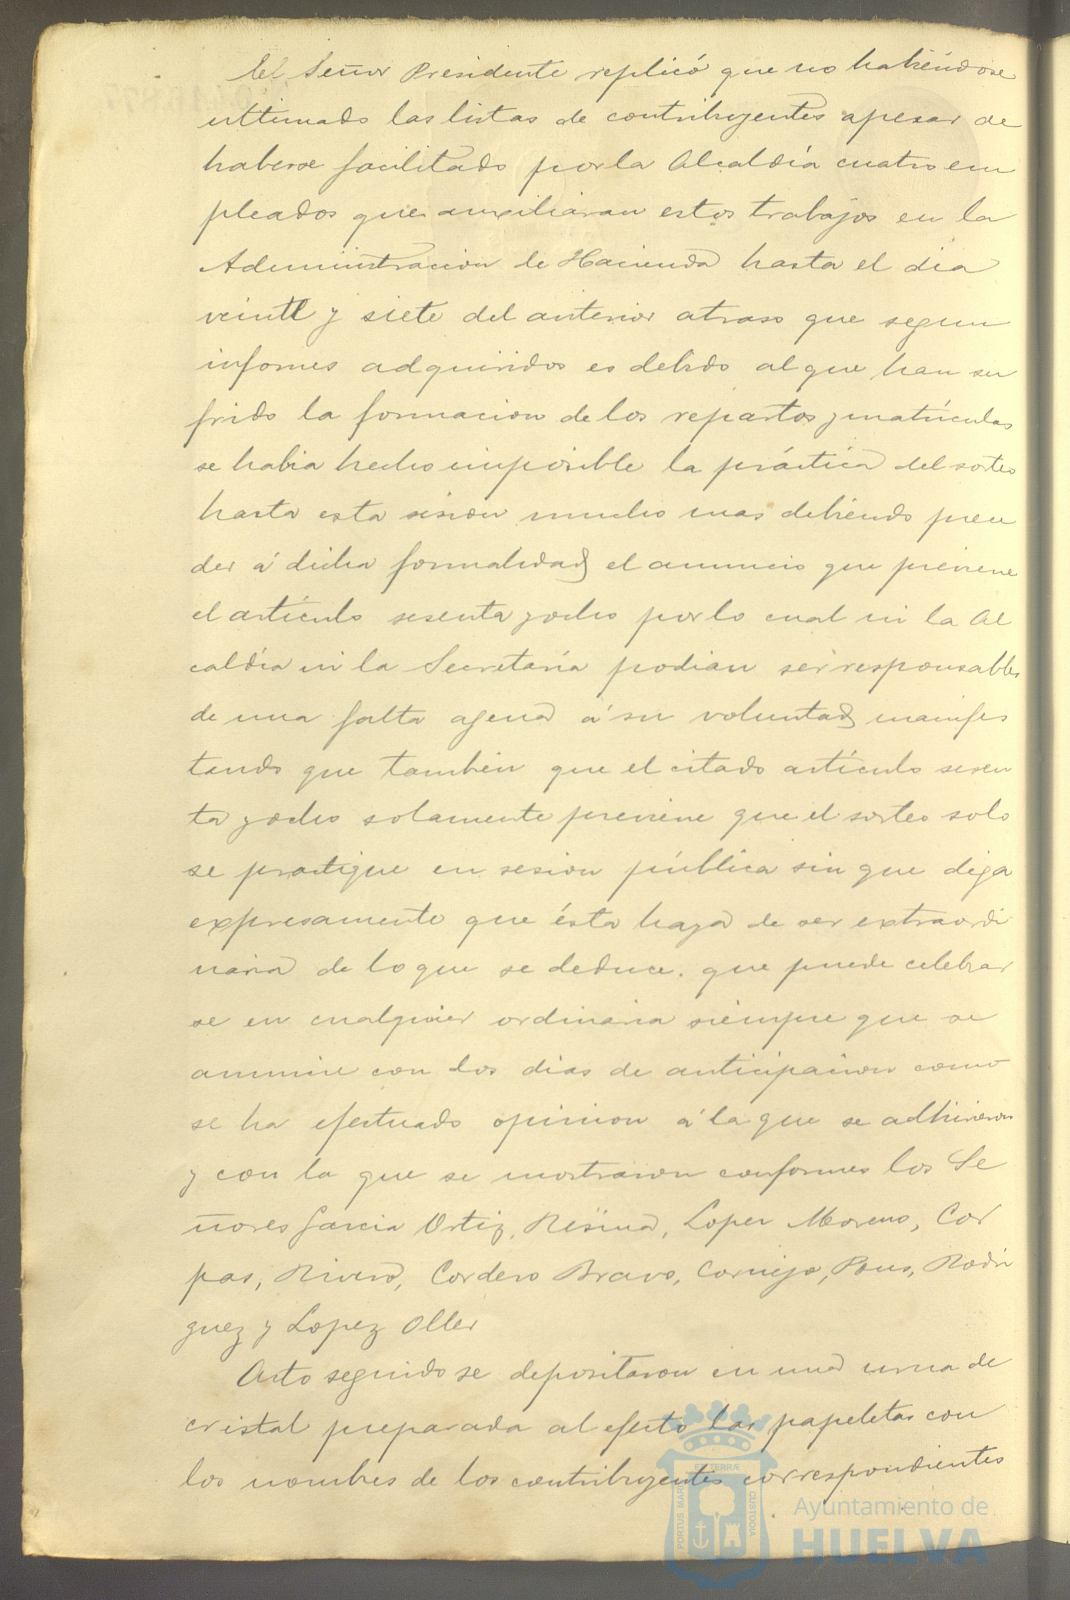 El Señor Presidente replicó que no habiéndose
ultimado las listas de contribuyentes apesar de
haberse facilitado por la Alcaldía cuatro em
pleados que auxiliaran estos trabajos en la
Administracion de Hacienda hasta el dia
veinte y siete del anterior atraso que segun
informes adquiridos es debido al que han su
frido la formacion de los repartos y matrículas
se habia hecho imposible la práctica del sorteo
hasta esta sesion mucho mas debiendo prece
der á dicha formalidad el anuncio que previene
el artículo sesenta y ocho por lo cual ni la Al
caldía ni la Secretaría podian ser responsables
de una falta agena á su voluntad manifes
tando que tambien que el citado artículo sesen
ta y ocho solamente previene que el sorteo solo
se practique en sesion pública sin que diga
expresamente que ésta haya de ser extraordi
naria de lo que se deduce que puede celebrar
se en cualquier ordinaria siempre que se
anuncie con dos dias de anticipacion como
se ha efectuado opinion á la que se adhirieron
y con la que se mostraron conformes los Se
ñores Garcia Ortiz, Lopez Moreno, Cor
pas, Rivero, Cordero Bravo, Cornejo, Pons, Rodri
guez y Lopez Oller
Acto seguido se depositaron en una urna de
cristal preparada al efecto las papeletas con
los nombres de los contribuyentes correspondientes
PORTUS MARIS
ET TERRÆ
CUSTODIA
Ayuntamiento de
HUELVA